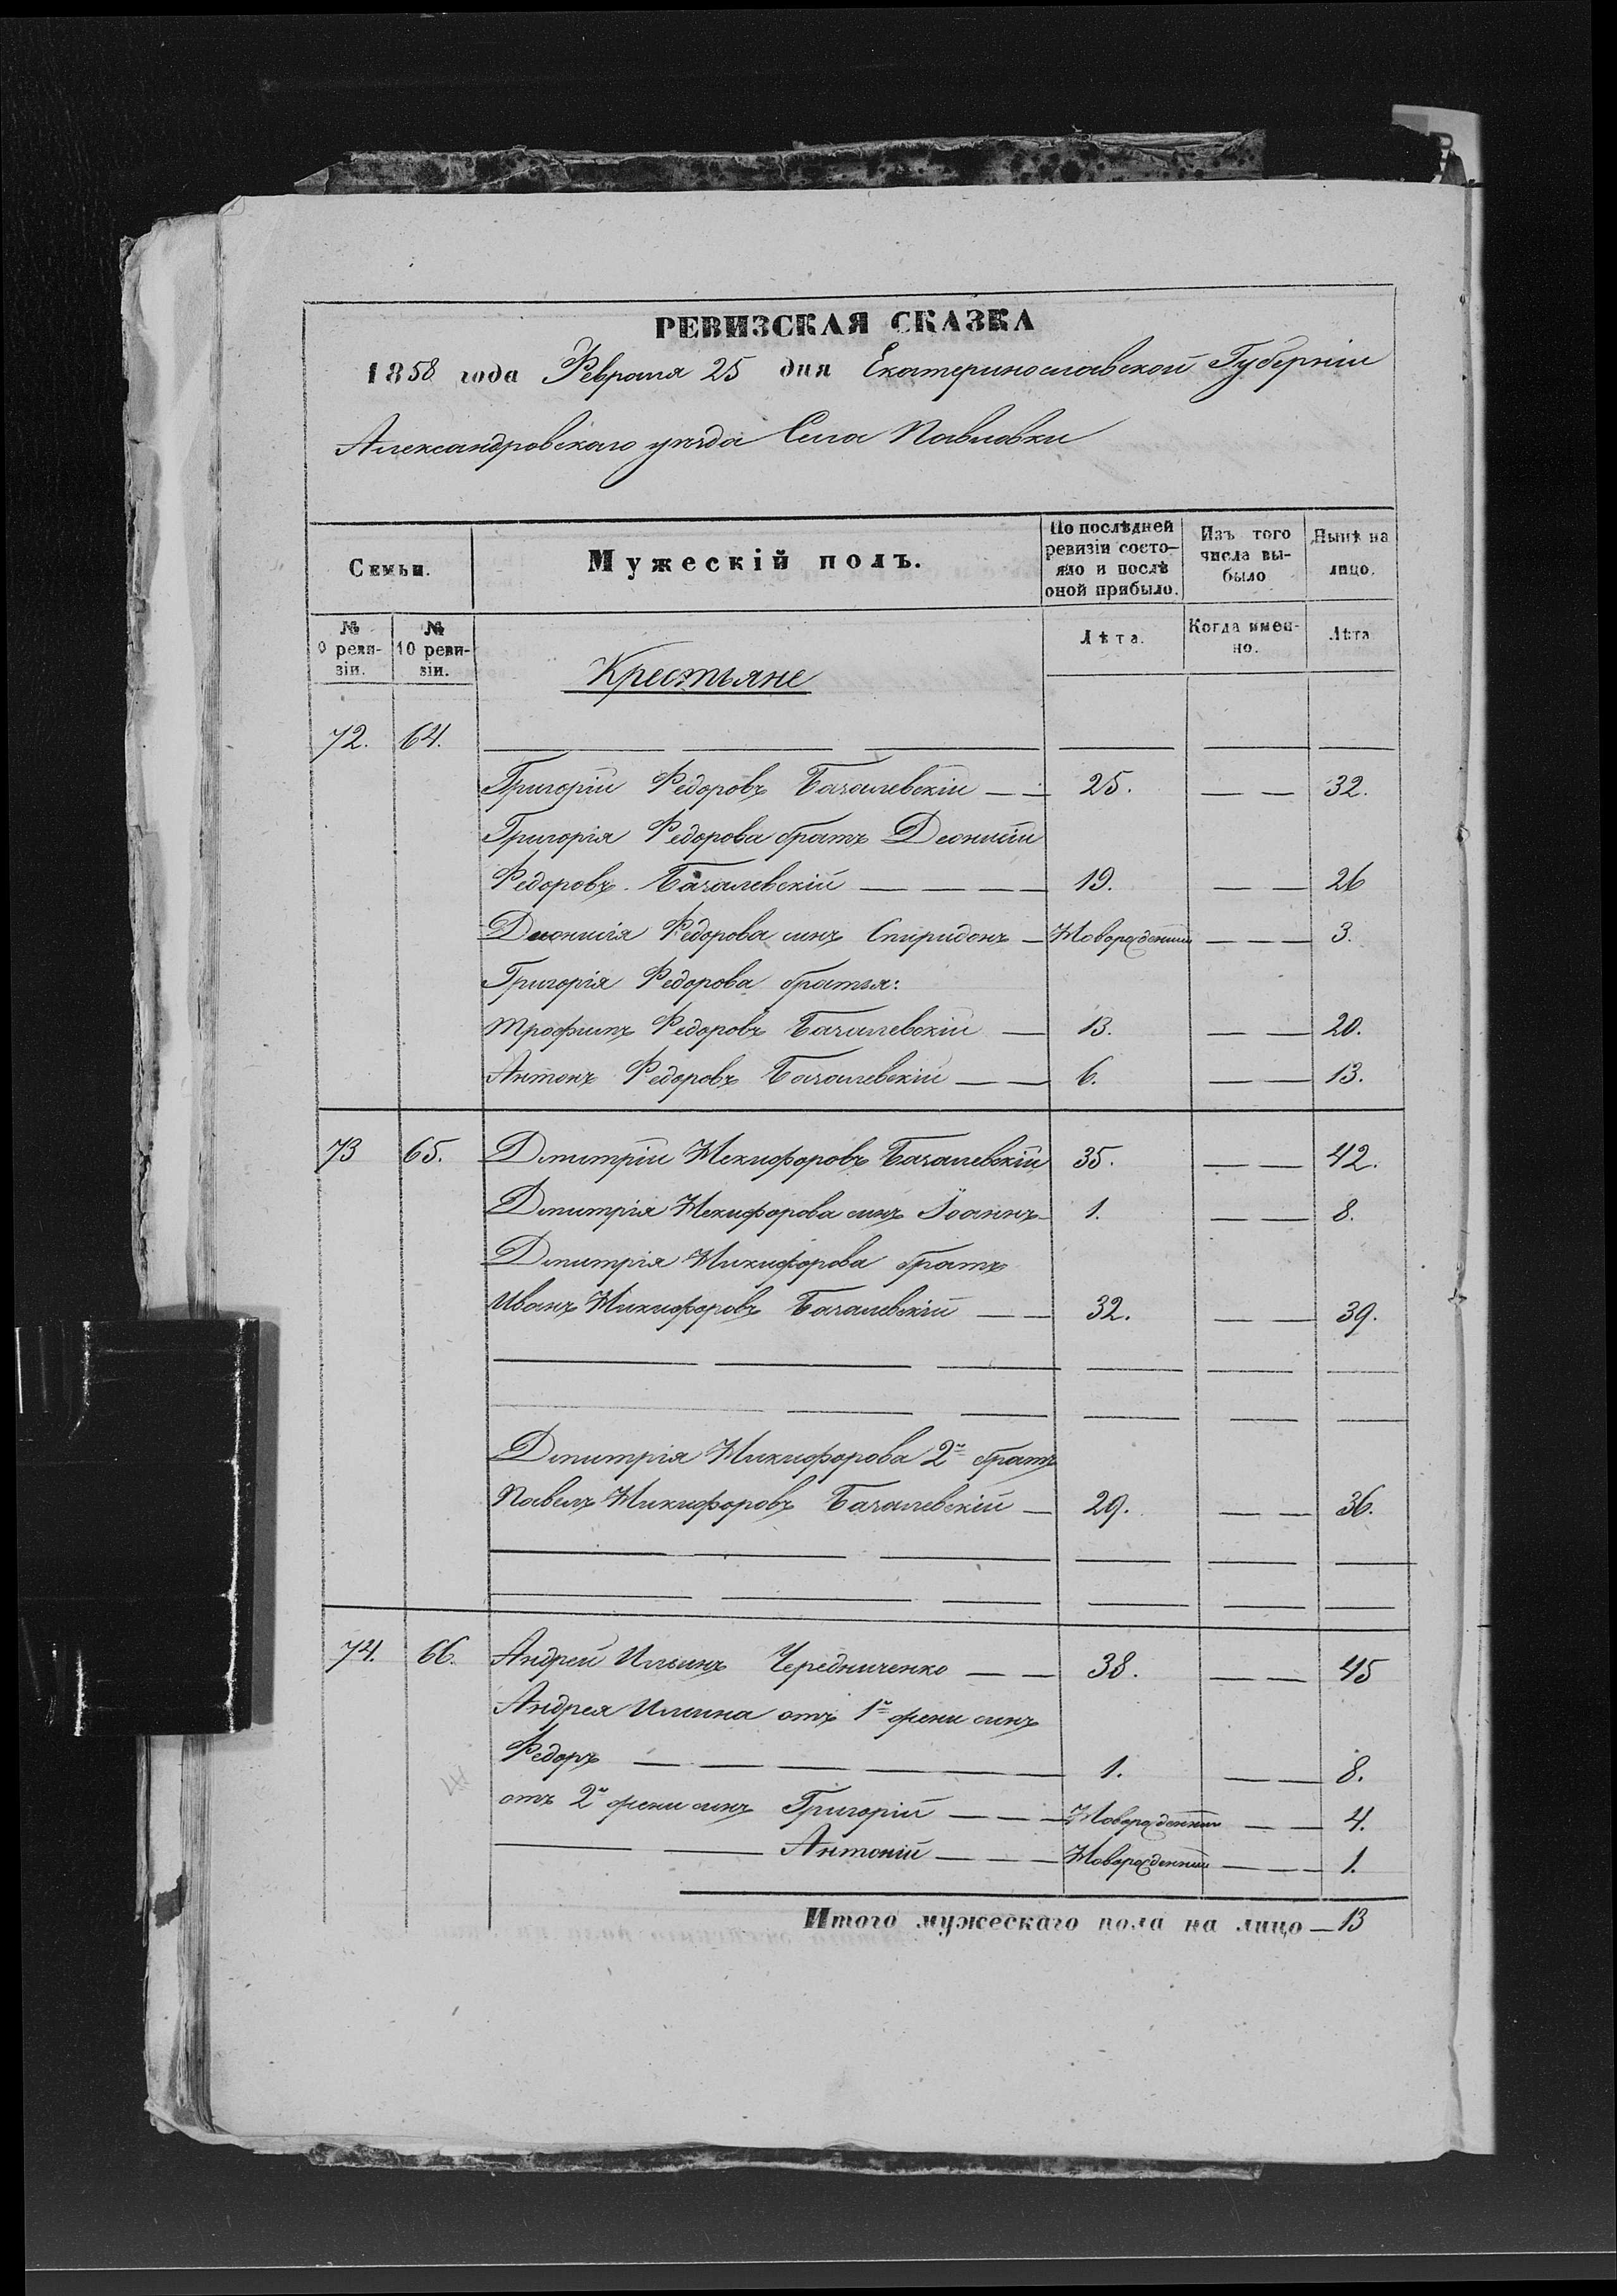 РЕВИЗСКАЯ СКАЗКА
1858 года Февраля 25 дня Екатеринославской Губерніи
Александровскаго уѣзда Села Павловки
Семьи.
Мужескій полъ.
По послѣдней ревизіи состояло и послѣ оной прибыло.
Изъ того числа выбыло
Нынѣ на лицо.
№ 9 ревизіи.
№ 10 ревизіи.
Лѣта.
Когда именно.
Лѣта
Крестьяне
72. 64.
Григорій Федоровъ Бачалевскій — — 25. — — 32.
Григорія Федорова братъ Деонисій
Федоровъ Бачалевскій — — — — 19. — — 26
Дионисія Федорова сынъ Спиридонъ — Новорожденный — — 3.
Григорія Федорова братья:
Трофимъ Федоровъ Бачалевскій — 13. — — 20.
Антонъ Федоровъ Бачалевскій — — 6. — — 13.
73 65. Дмитрій Некифоровъ Бачалевскій 35. — — 42.
Дмитрія Некифорова сынъ Іоаннъ — 1. — — 8.
Дмитрія Никифорова братъ
Иванъ Никифоровъ Бачалевскій — — 32. — — 39.
Дмитрія Никифорова 2й братъ
Павелъ Никифоровъ Бачалевскій — 29. — — 36.
74. 66. Андрей Ильинъ Чередниченко — — 38. — — 45
Андрея Ильина отъ 1й жены сынъ
Федоръ — — — — — 1. — — 8.
отъ 2й жены сынъ Григорій — — — Новорожденный — — 4.
— — Антоній — — — Новорожденный — — 1.
Итого мужескаго пола на лицо — 13